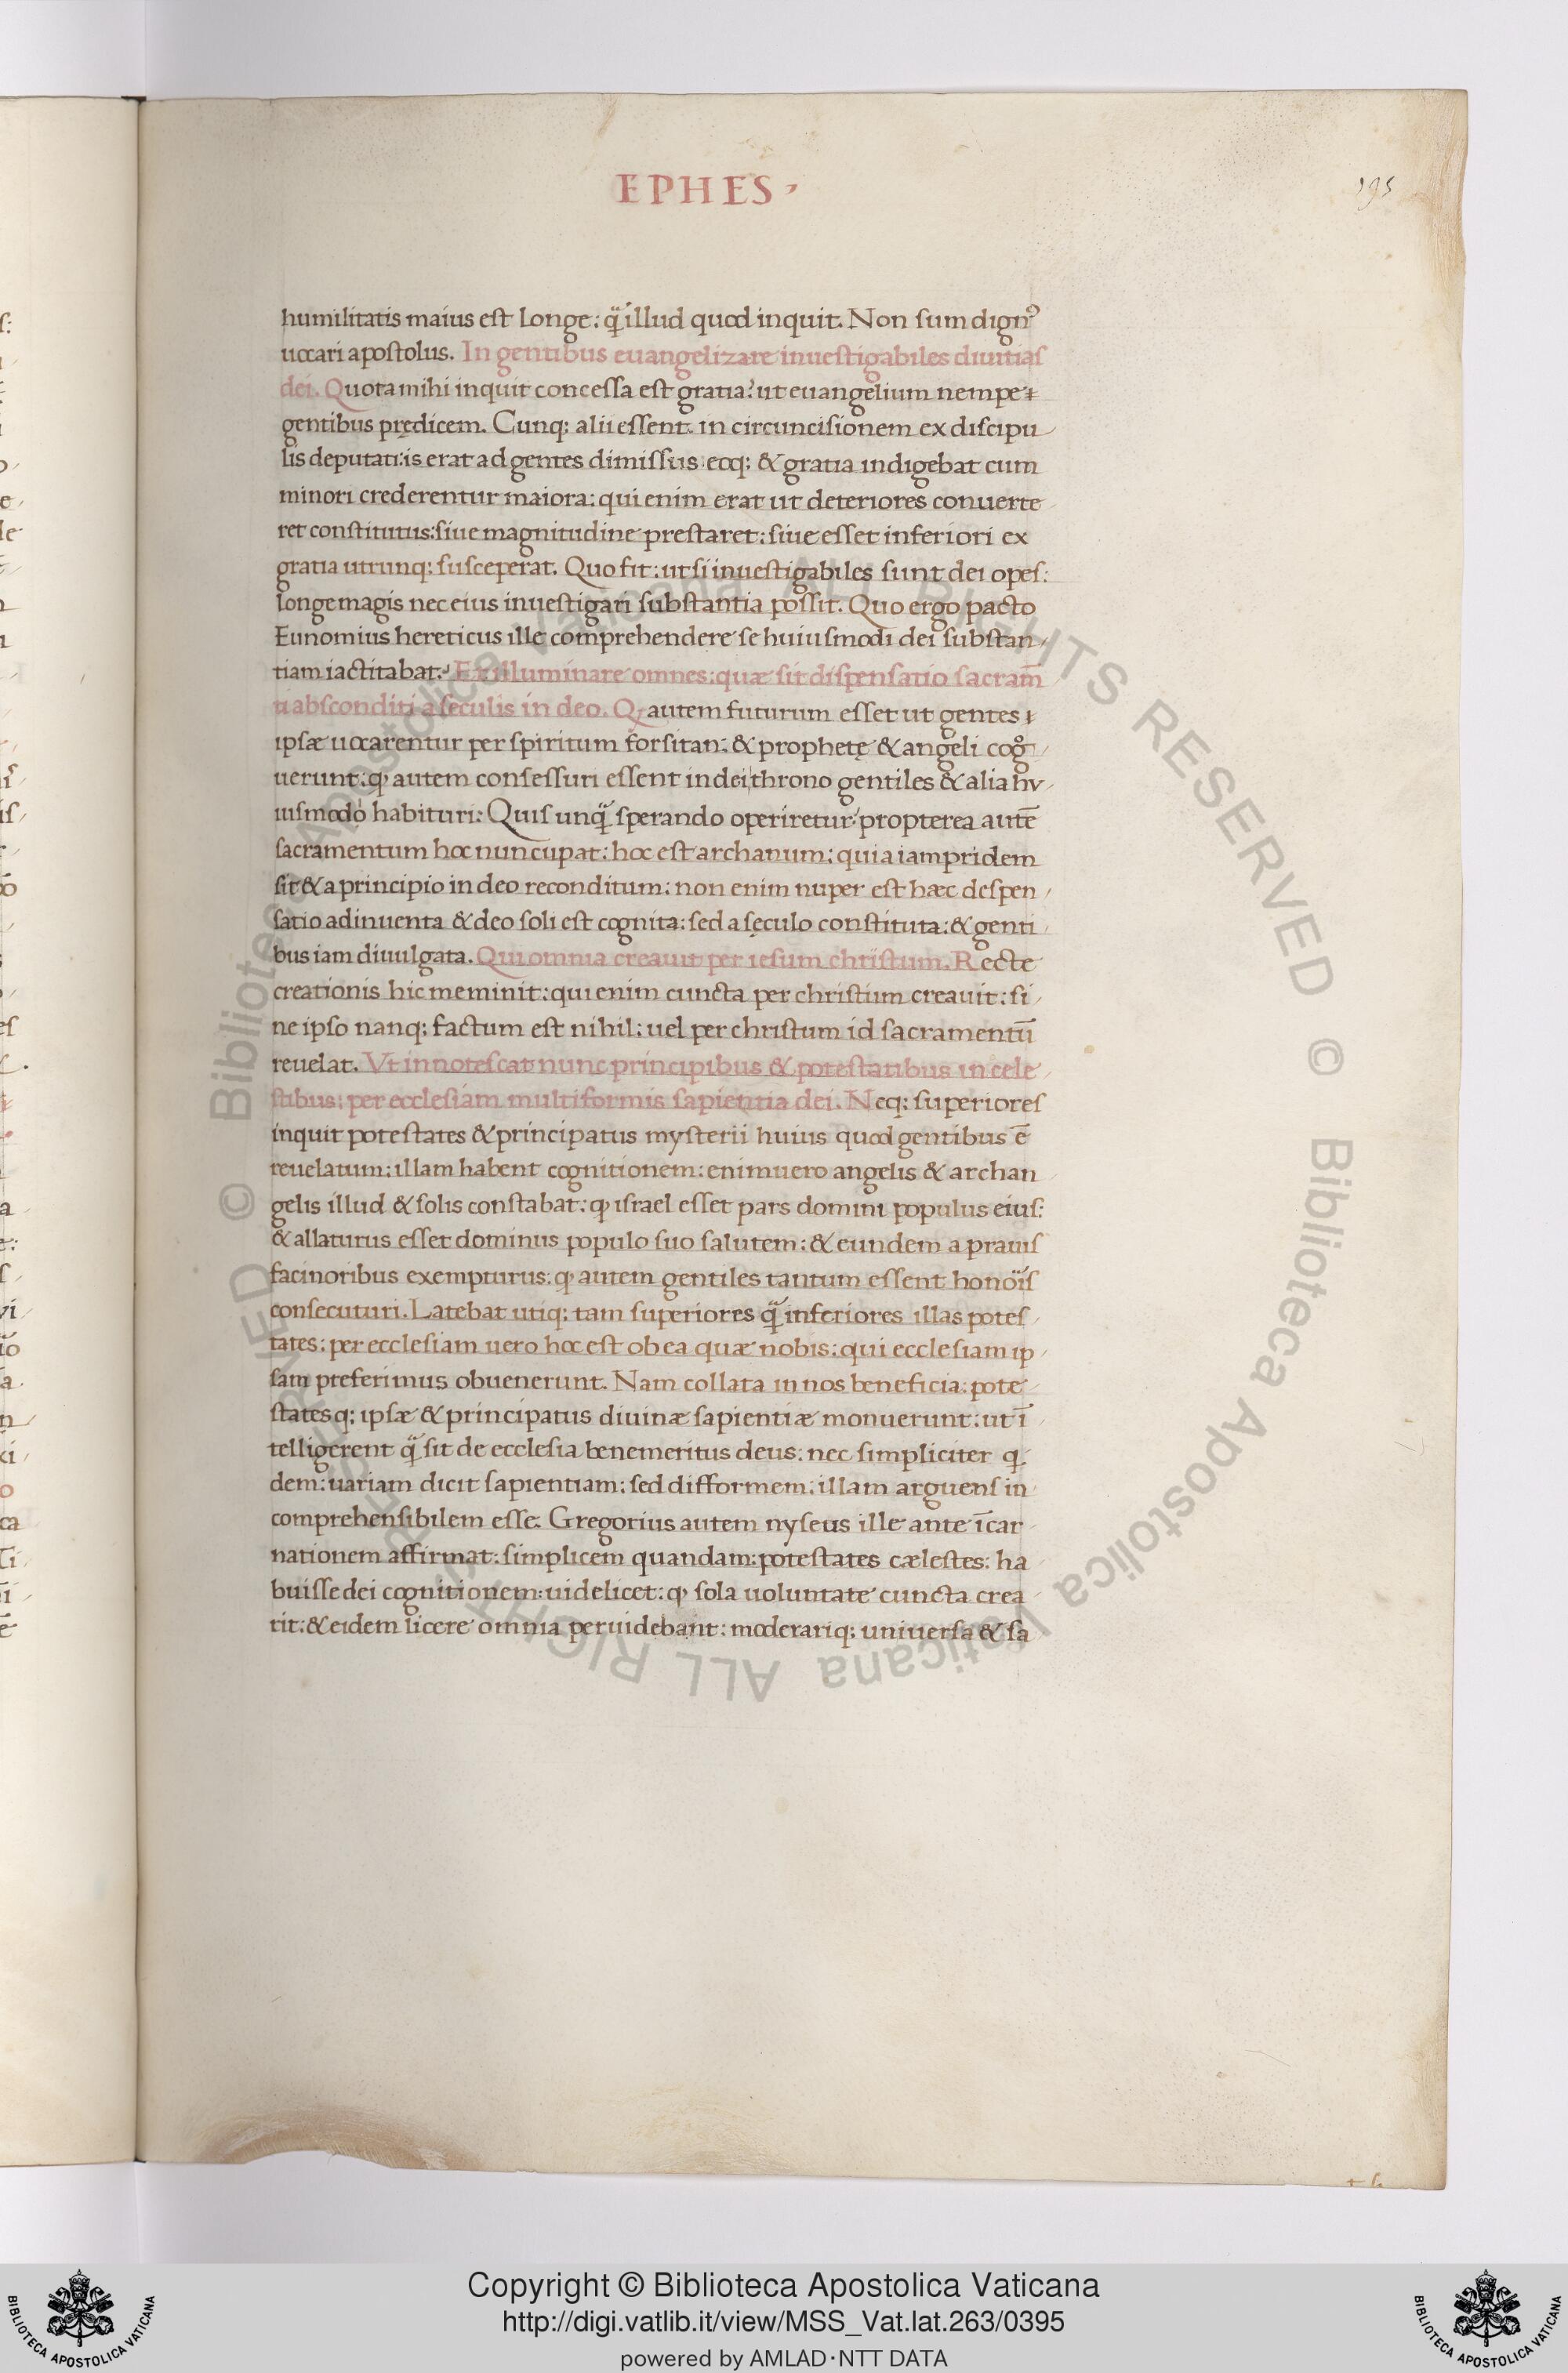 EPHES
195
humilitatis maius est longe: q̃ illud quod inquit. Non sum dignꝰ
uocari apostolus. In gentibus euangelizare inuestigabiles diuitias
dei. Quota mihi inquit concessa est gratia? ut euangelium nempe
gentibus prędicem. Cunq; alii essent in circuncisionem ex discipu
lis deputati: is erat ad gentes dimissus eoq; & gratia indigebat cum
minori crederentur maiora: qui enim erat ut deteriores conuerte
ret constitutus: siue magnitudine prestaret: siue esset inferiori ex
gratia utrunq; susceperat. Quo fit: ut si inuestigabiles sunt dei opes:
longe magis nec eius inuestigari substantia possit. Quo ergo pacto
Eunomius hereticus ille comprehendere se huiusmodi dei substan
tiam iactitabat. Et illuminare omnes: quæ sit dispensatio sacram̅
ti absconditi a seculis in deo. Q autem futurum esset ut gentes
ipsæ uocarentur per spiritum forsitan: & prophetę & angeli cog
uerunt: ꝙ autem consessuri essent in dei throno gentiles & alia hu
iusmodo habituri: Quis unq̃ sperando operiretur propterea aute̅
sacramentum hoc nuncupat: hoc est archanum: quia iampridem
sit & a principio in deo reconditum: non enim nuper est hæc despen
satio adinuenta & deo soli est cognita: sed a sęculo constituta: & genti
bus iam diuulgata. Qui omnia creauit per iesum christum. Recte
creationis hic meminit: qui enim cuncta per christum creauit: si
ne ipso nanq; factum est nihil: uel per christum id sacramentu̅
reuelat. Vt innotescat nunc principibus & potestatibus in cele
stibus: per ecclesiam multiformis sapientia dei. Neq; superiores
inquit potestates & principatus mysterii huius quod gentibus e̅
reuelatum: illam habent cognitionem: enimuero angelis & archan
gelis illud & solis constabat: ꝙ israel esset pars domini populus eius:
& allaturus esset dominus populo suo salutem: & eundem a prauis
facinoribus exempturus: ꝙ autem gentiles tantum essent honois
consecuturi. Latebat utiq; tam superiores q̃ inferiores illas potes
tates: per ecclesiam uero hoc est ob ea quæ nobis: qui ecclesiam ip
sam preferimus obuenerunt. Nam collata in nos beneficia: pote
statesq; ipsæ & principatus diuinæ sapientiæ monuerunt: ut i̅
telligerent q̃ sit de ecclesia benemeritus deus: nec simpliciter q
dem: uariam dicit sapientiam: sed difformem: illam arguens in
comprehensibilem esse. Gregorius autem nyseus ille ante i̅car
nationem affirmat: simplicem quandam: potestates cælestes: ha
buisse dei cognitionem: uidelicet: ꝙ sola uoluntate cuncta crea
rit: & eidem licere omnia peruidebant: moderariq; uniuersa & sa
© Biblioteca Apostolica Vaticana ALL RIGHTS RESERVED © Biblioteca Apostolica Vaticana ALL RIGHTS RESERVED
Copyright © Biblioteca Apostolica Vaticana
http://digi.vatlib.it/view/MSS_Vat.lat.263/0395
powered by AMLAD·NTT DATA
BIBLIOTECA APOSTOLICA VATICANA
BIBLIOTECA APOSTOLICA VATICANA